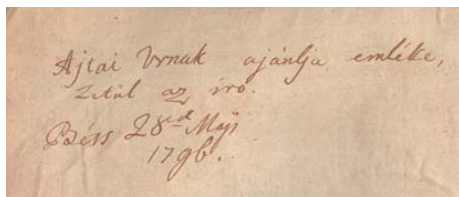 Ajtai Vrnak ajánlja emléke,
zetül az író.
Béss 28id Maji
1796.